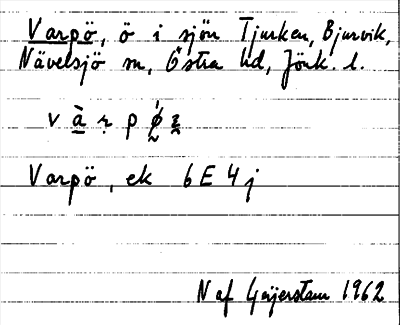 Varpö, ö i sjön Tjurken, Bjurvik,
Nävelsjö sn, Östra hd, Jönk. l.
v à r p
Varpö, ek 6E4j
N af Geijerstam 1962